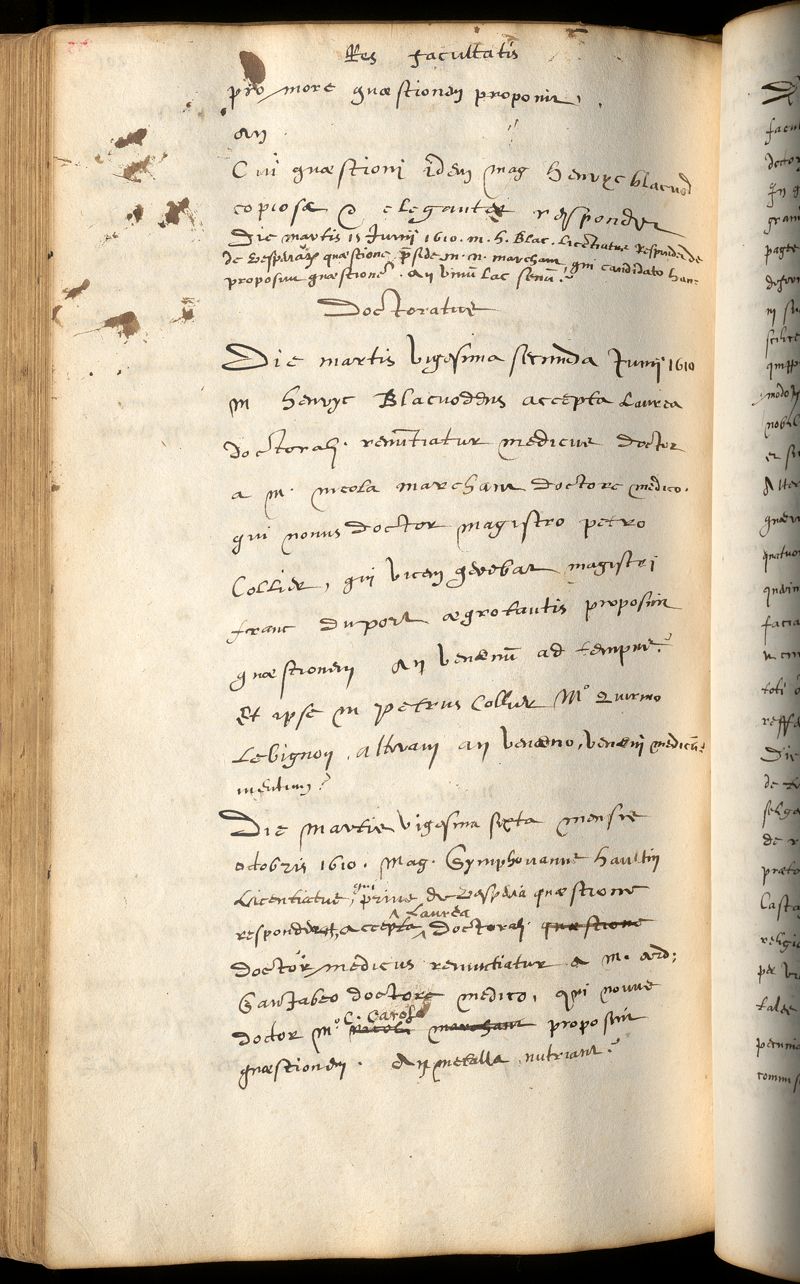 Res facultatis
pro more quæstionem proponit,
an
Cui quæstioni idem mag henryc blacuod
copiosæ & eleganter respondet
Die martis 15 Junij 1610. m. h. Blac. Licentiatus Respondet de
de Vesperiar quæstione præside m. n. marchant, qui candidato hanc
proposuit quæstione. An vinu lac senu?
Doctoratus
Die martis vigesima secunda Junij 1610
M henryc Blacuoddus accepta Laurea
doctorali. renuntiatur medicus doctor
a m. nicola marchant doctore medico.
qui nonus doctor magistro petro
Collier, qui vicem gerebat magistri
franc duport ægrotantis proposuit
quæstionem an venenu ad tempus?
Et ipse M petrus Collier Mo Quirino
Lebignon, alteram an veneno, veneni medica=
mentum?
Die martis vigesima sexta mensis
octobris 1610. Mag. Symphorianus hautin
Licentiatus, qui prius de Vesperia quæstione
respondit accepta Laurea doctorali quæstione
doctor medicus renuntiatur a m.
Santabeo doctore medico, qui nouus
doctor mo C. Carolo nicoli marchant proposuit
quæstionem. An metalla nutriant?